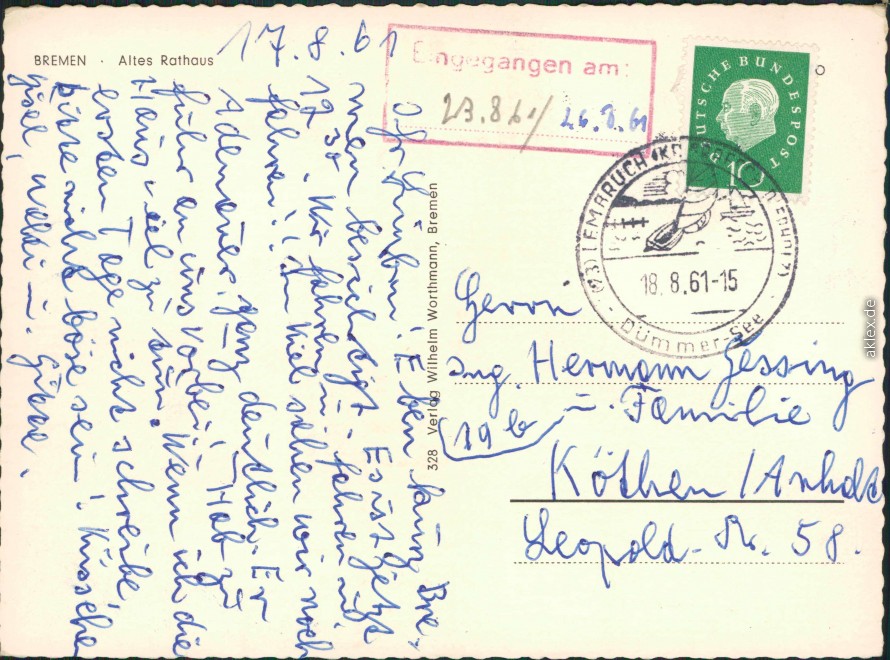 BREMEN · Altes Rathaus
17.8.61
Ihr Lieben! Eben kurz Bre-
men besichtigt. Es ist jetzt
17 30 Uhr fahren u. fahren
fahren!! In Kiel sahen wir noch
Adenauer, ganz deutlich. Er
fuhr an uns vorbei! Hab zu
Haus viel zu tun. Wenn ich die
ersten Tage nicht schreibe,
bitte nicht böse sein! Küsschen
u. Gitte.
328 Verlag Wilhelm Worthmann, Bremen
Eingegangen am:
23.8.61/ 26.8.61
DEUTSCHE BUNDESPOST
10
(23) LEMBRUCH (KR GRFSCH DIEPHOLZ)
18.8.61-15
Dümmer-See
Herrn
Ing. Hermann Jessing
u. Familie
19b
Köthen / Anhalt
Leopold-Str. 58.
aklex.de